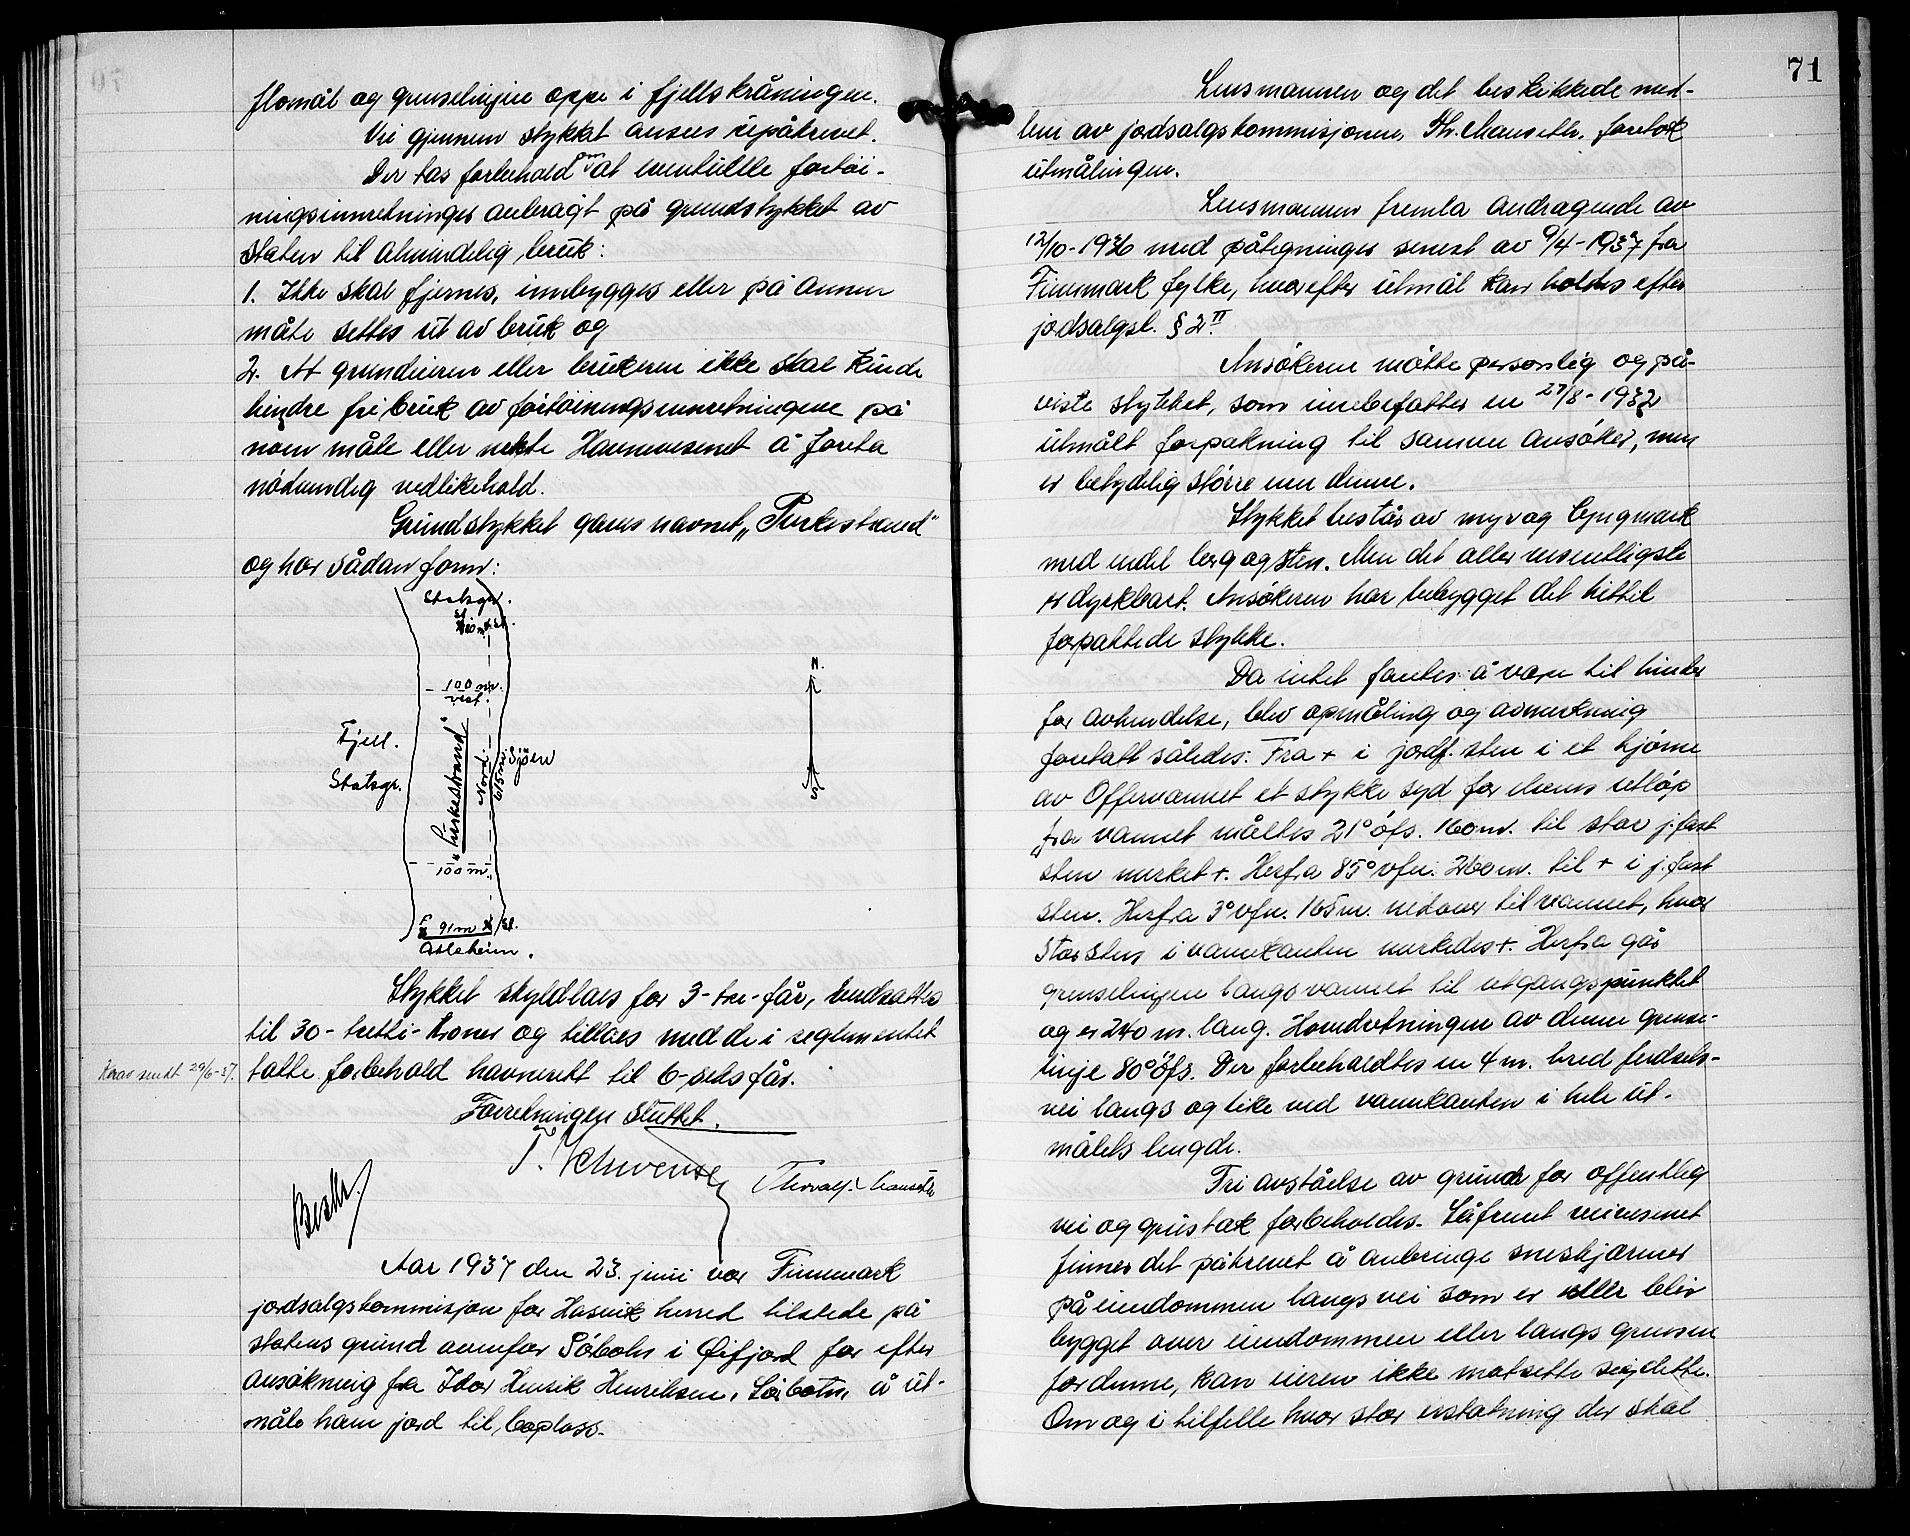 flomål og grenselinjen oppe i fjellskråningen.
Vei gjennem stykket ansees upåkrevet.
Der tas forbehold om at eventuelle fortøi-
ningsinnretninger anbragt på grundstykket av
staten til almindelig bruk:
1. Ikke skal fjernes, innbygges eller på annen
måte settes ut av bruk og
2. At grundeieren eller brukeren ikke skal kunde
hindre fri bruk av fortøiningsinnretningene på
noen måte eller nekte Havnevesenet å foreta
nödvendig vedlikehold.
Grundstykket gaves navnet „Purkestrand"
og har sådan form:
Statsgr.
100 m.
vest.
Fjell.
Statsgr.
„Purkestrand"
Nord
615 m.
Sjöen
100 m.
91 m
Asleheim.
N.
S.
Stykket skyldlaes for 3-tre-før, verdsattes
til 30-tretti-kroner og tillaes med de i reglementet
tatte forbehold havnerett til 6-seks får.
Krav sendt 29/6-37.
Forretningen sluttet.
Thoralf Mauseth
Besøkt.
Aar 1937 den 23. juni var Finnmark
jordsalgskommisjon for Hasvik herred tilstede på
statens grund ovenfor Sörbotn i Øifjord for efter
ansökning fra Idar Henrik Henriksen, Sörbotn, å ut-
måle ham jord til boplass.
71
Lensmannen og det beskikkede med-
lem av jordsalgskommisjonen, Th. Mauseth, foretok
utmålingen.
Lensmannen fremla andragende av
12/10-1936 med påtegninger senest av 9/4-1937 fra
Finnmark fylke, hvorefter utmål kan holdes efter
jordsalgsl. § 2 II.
Ansökeren mötte personlig og på-
viste stykket, som innbefatter en 27/8-1932
utmålt forpaktning til samme ansöker, men
er betydelig större enn denne.
Stykket består av myr og lyngmark
med endel berg og sten. Men det aller vesentligste
er dyrkbart. Ansökeren har bebygget det hittil
forpaktede stykke.
Da intet fantes å være til hinder
for avhendelse, blev opmåling og avmerkning
foretatt således: Fra + i jordf. sten i et hjörne
av Offervannet et stykke syd for elvens utlöp
fra vannet måltes 21° öfs. 160 m. til stor j.fast
sten merket +. Herfra 85° vfn. 260 m. til + i j.fast
sten. Herfra 3° vfn. 165 m. nedover til vannet, hvor
stor sten i vannkanten merkedes +. Herfra går
grenselinjen langs vannet til utgangspunktet
og er 240 m. lang. Hovedretningen av denne grense-
linje 80° öfs. Der forbeholdtes en 4 m. bred ferdsels-
vei langs og like ved vannkanten i hele ut-
målets lengde.
Fri avståelse av grund for offentlig
vei og grustak forbeholdes. Såfremt veivesenet
finner det påkrevet å anbringe sneskjærmer
på eiendommen langs vei som er eller blir
bygget over eiendommen eller langs grensen
for denne, kan eieren ikke motsette sig dette.
Om og i tilfelle hvor stor erstatning der skal